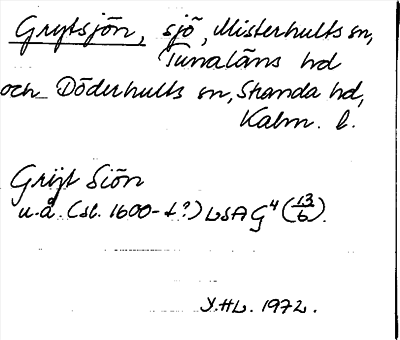 Grytsjön, sjö, Misterhults sn,
Tunaläns hd
och Döderhults sn, Stranda hd,
Kalm. l.
Grijt Siön
u.å. (sl. 1600-t?) LSA G4 (13/6).
Y.HL. 1972.